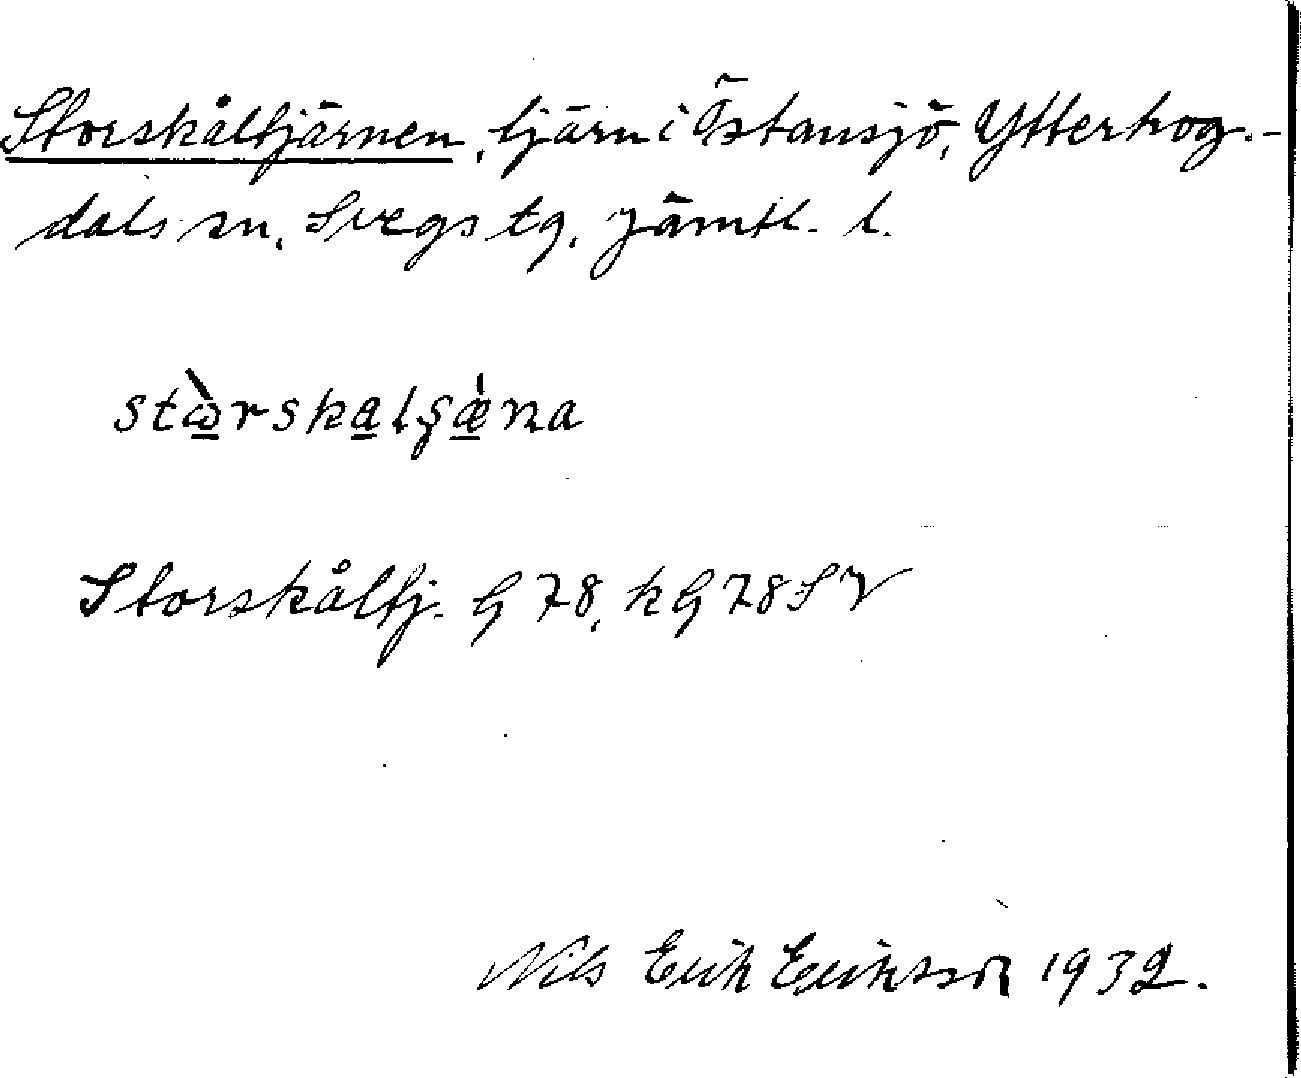 Storskåltjärnen, tjärn i Östansjö, Ytterhog-
dals sn, Svegs tg, Jämtl. l.
stὼ̲rska̲lʂæ̲̀na
Storskåltj. G 78, k G 78 SV
Nils Erik Eriksson 1932.